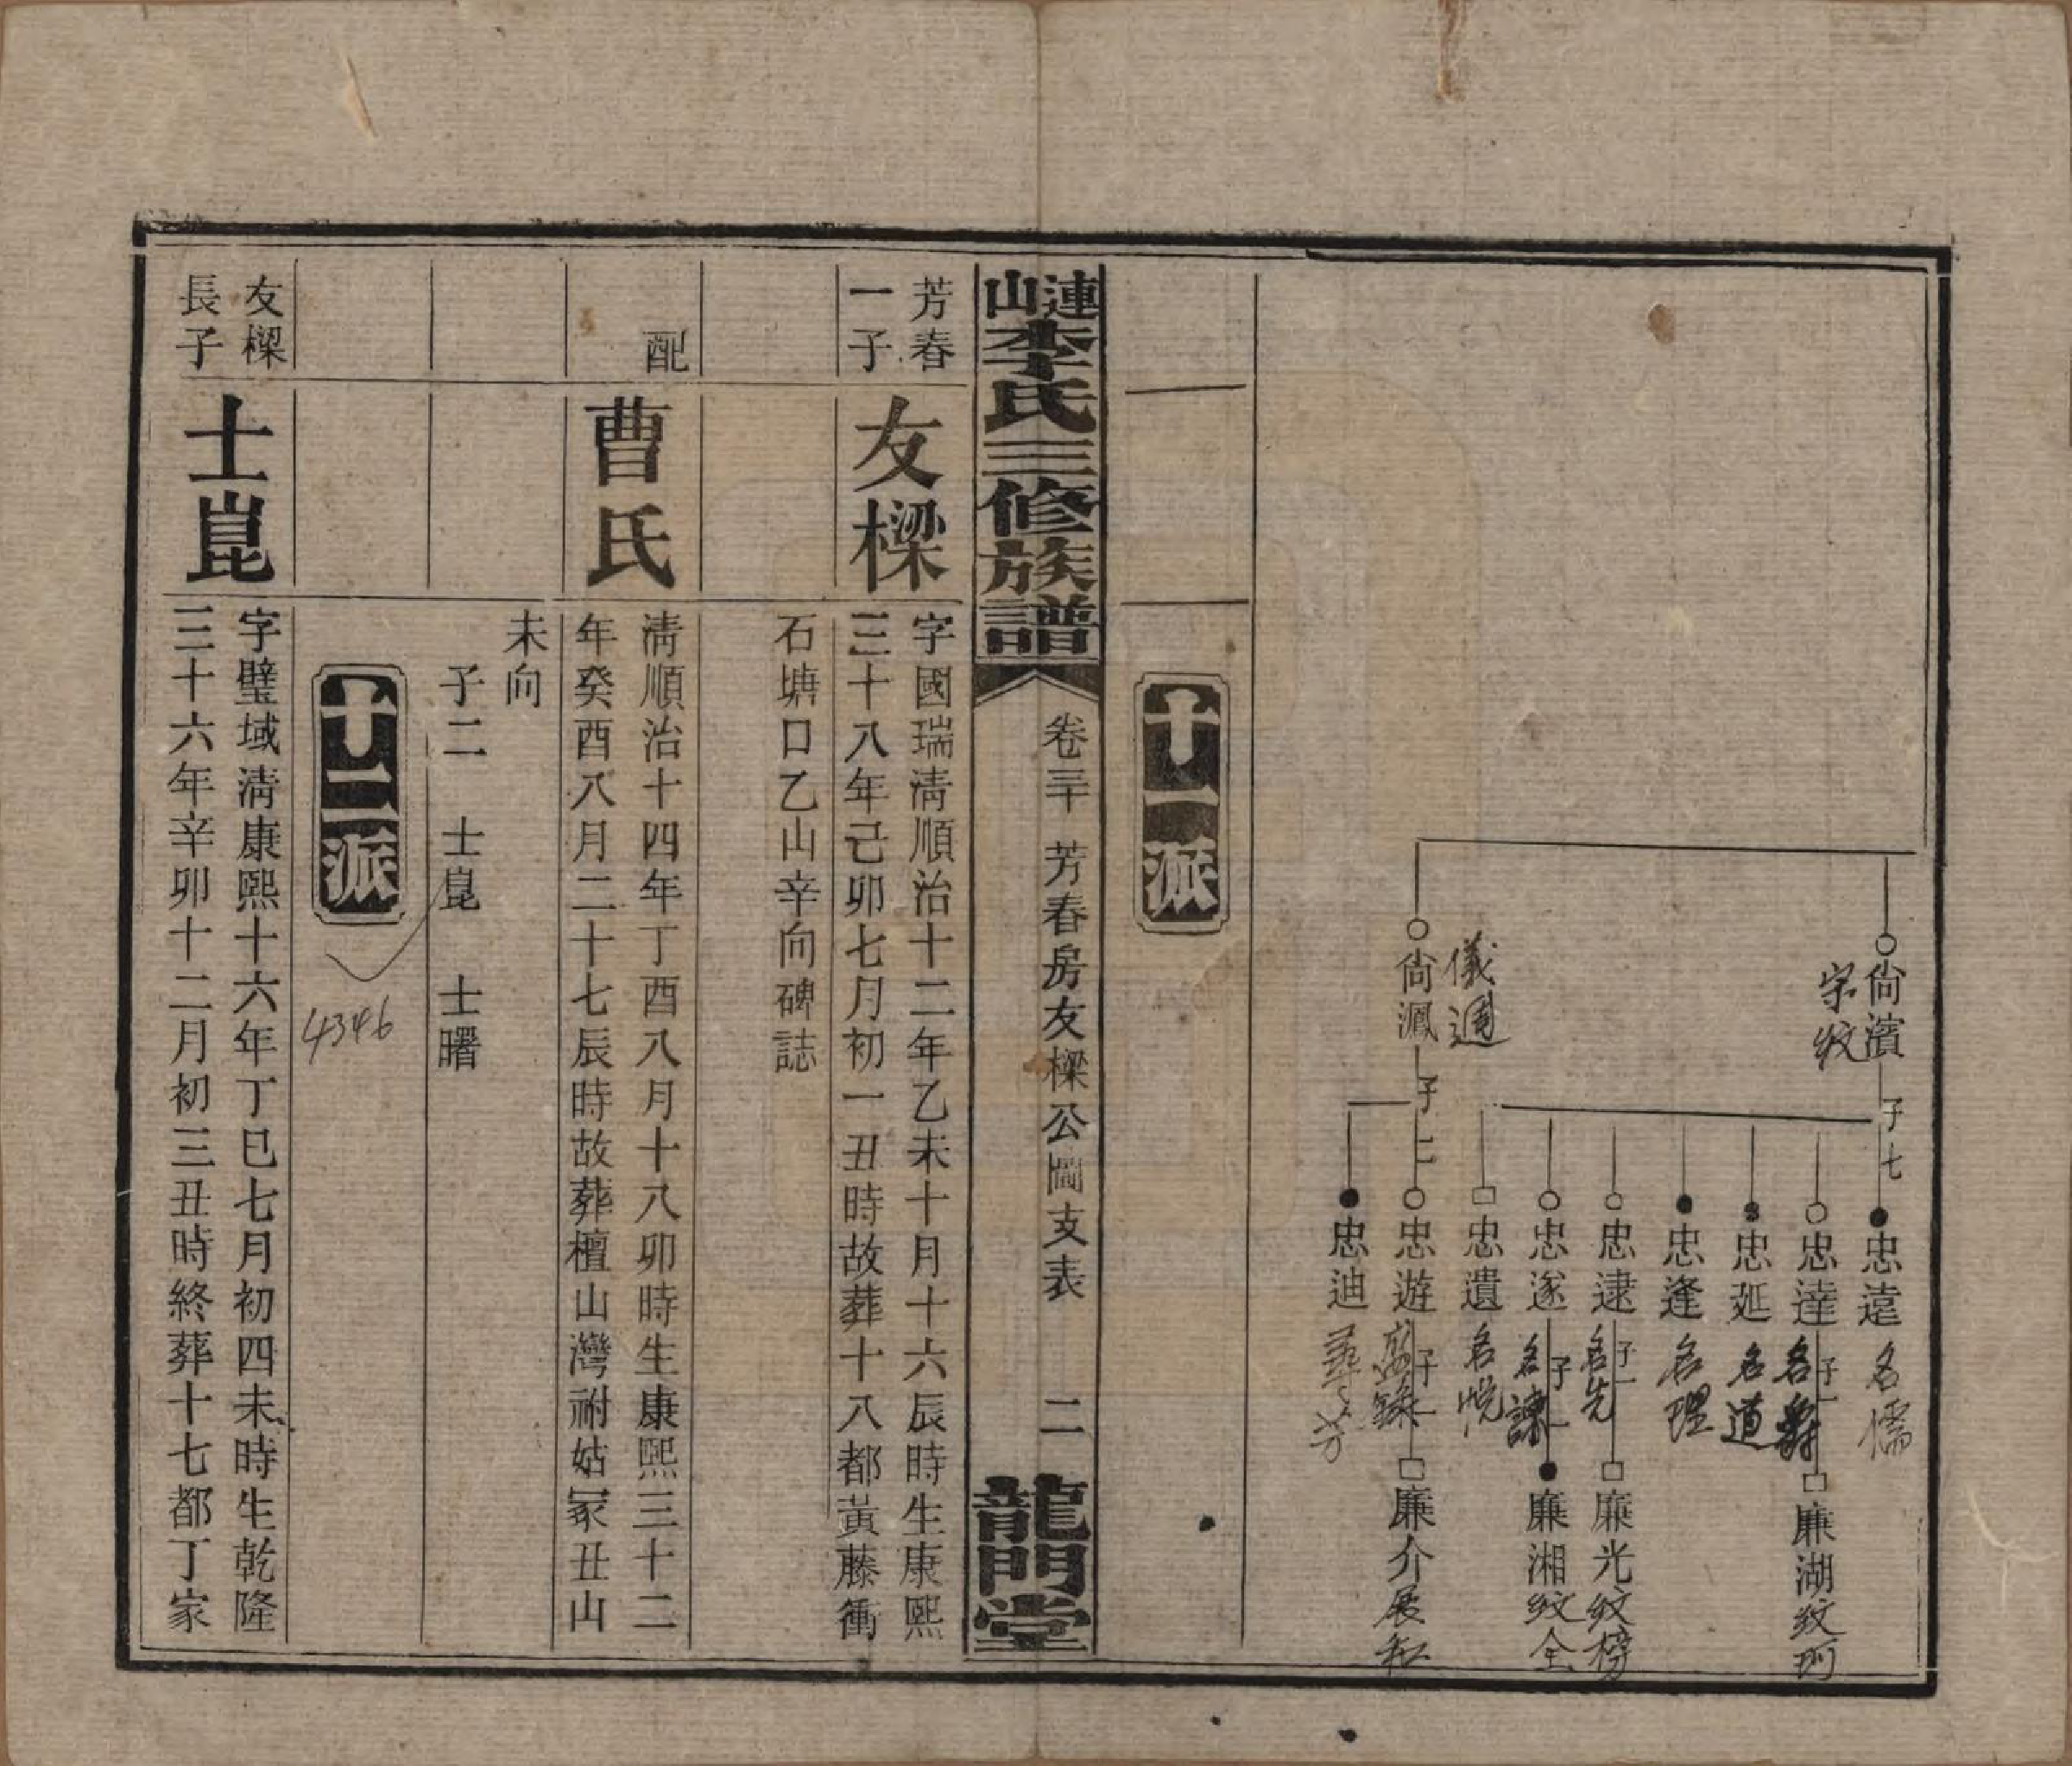 尙濱 子七
尙澱 子二
儀
忠遠
忠達 子一
忠延
忠逢
忠逮 子一
忠遂 子一
忠遺
忠遊 子一
忠迪
名儒
名道
名理
名先
名謙
名悅
廉湖 紋珂
廉光 紋榜
廉湘 紋全
廉介
十一派
連山李氏三修族譜
卷三十 芳春房友樑公圖支表 二
龍門堂
芳春一子
友樑
字國瑞淸順治十二年乙未十月十六辰時生康熙
三十八年己卯七月初一丑時故葬十八都黃藤衝
石塘口乙山辛向碑誌
配
曹氏
淸順治十四年丁酉八月十八卯時生康熙三十二
年癸酉八月二十七辰時故葬檀山灣祔姑冢丑山
未向
子二 士崑 士曙
十二派
4346
友樑長子
士崑
字璧域淸康熙十六年丁巳七月初四未時生乾隆
三十六年辛卯十二月初三丑時終葬十七都丁家